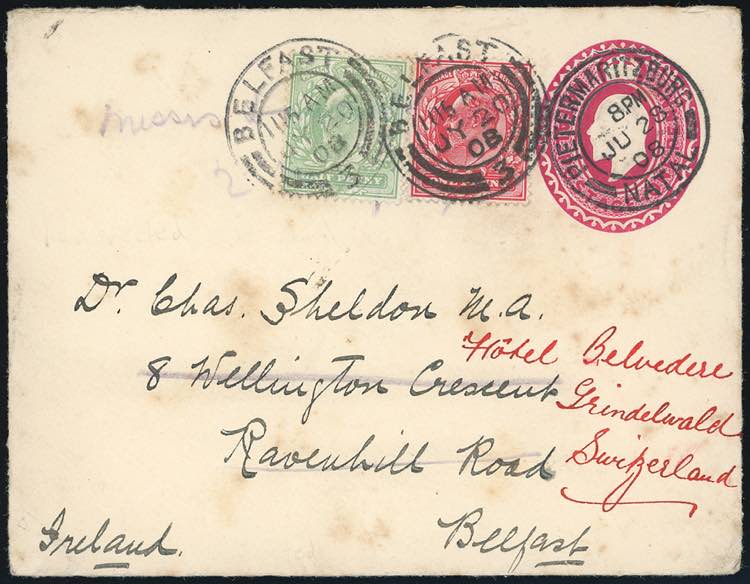 BELFAST
1115 AM
JY 20
08
BELFAST
1115 AM
JY 20
08
PIETERMARITZBURG
8 PM
JU 26
08
NATAL
HALFPENNY
Dr. Chas. Sheldon M.A.
8 Wellington Crescent
Ravenhill Road
Belfast
Ireland.
Hôtel Belvedere
Grindelwald
Switzerland